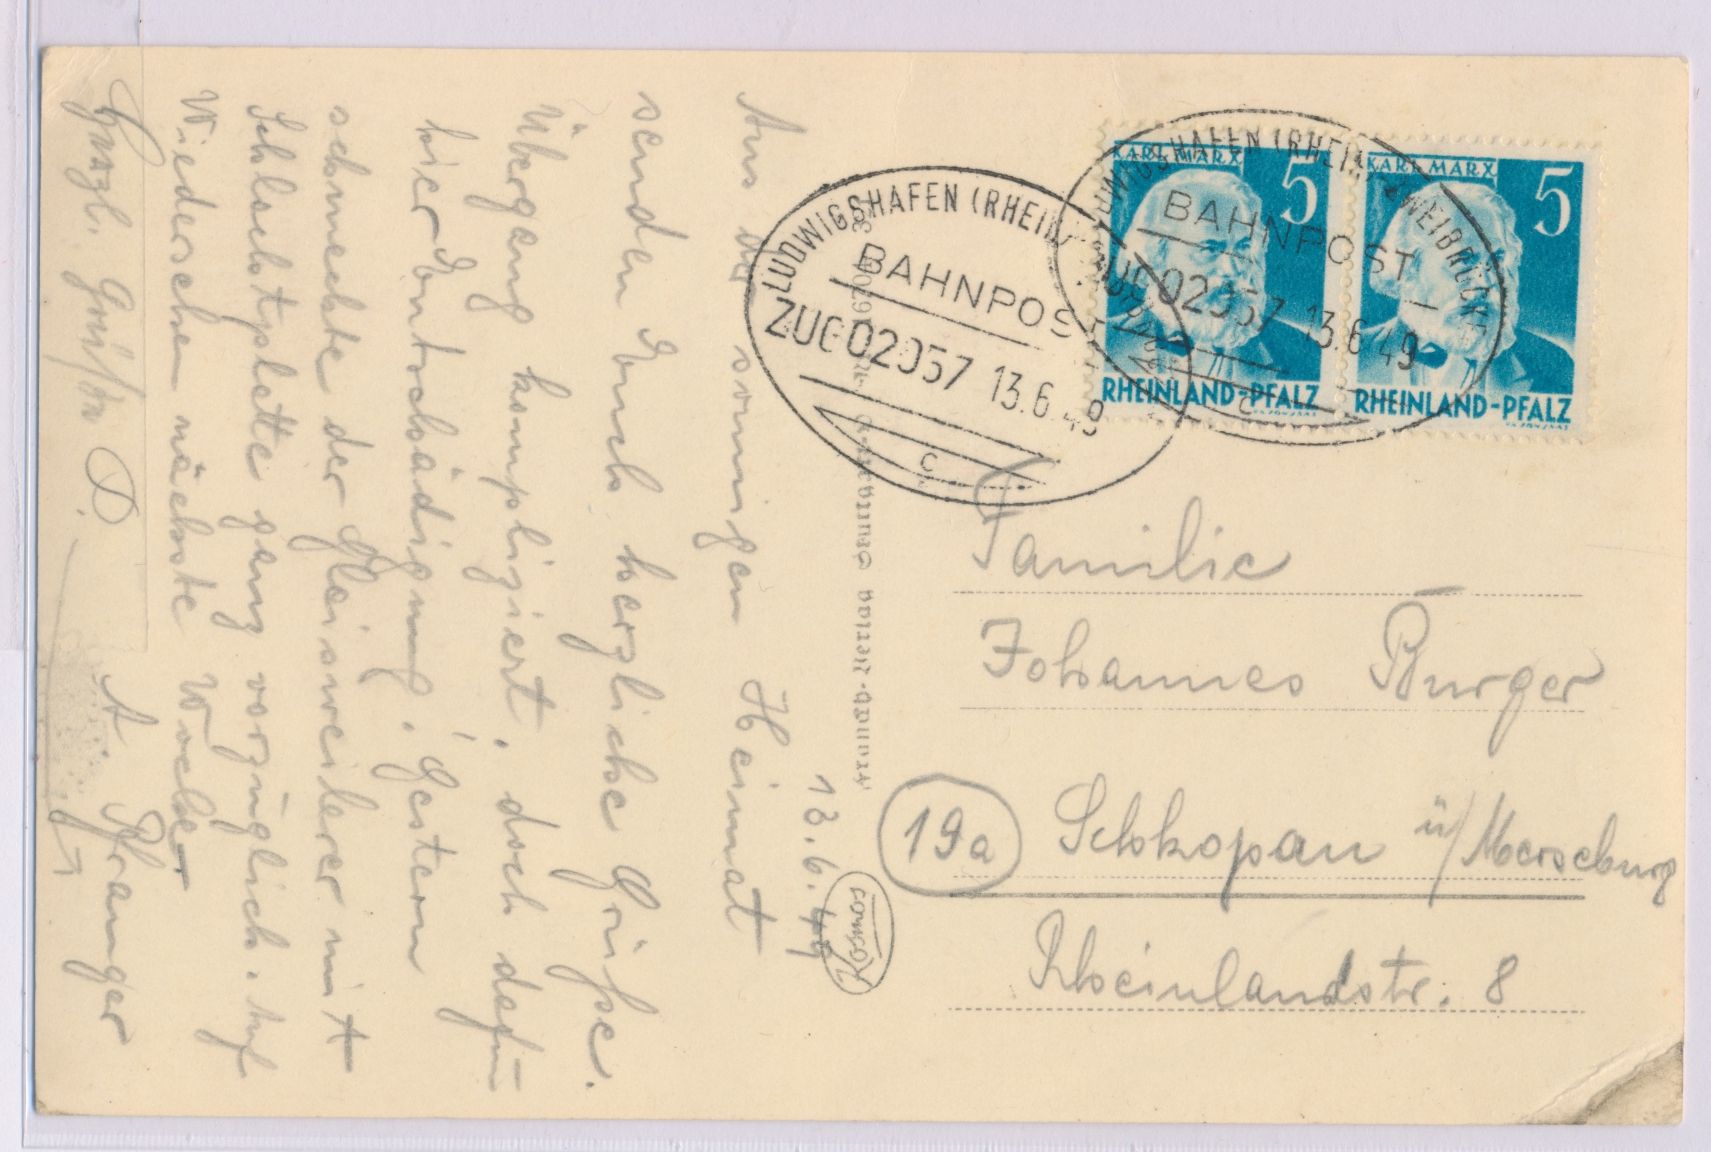 13.6.49
Aus der sonnigen Heimat
senden Euch herzliche Grüße.
Übergang kompliziert, doch dafür
hier Entschädigung. Gestern
schmeckte der Gleisweilerer mit
Schlachtplatte ganz vorzüglich. Auf
Wiedersehen nächste Woche
Herzl. Grüße D.
A. Pfranger
LUDWIGSHAFEN (RHEIN)
BAHNPOST
ZUG 02057 13.6.49
c
LUDWIGSHAFEN (RHEIN)-ZWEIBRÜCKEN
BAHNPOST
ZUG 02057 13.6.49
c
KARL MARX 5
RHEINLAND-PFALZ
KARL MARX 5
RHEINLAND-PFALZ
Familie
Johannes Burger
19a Schkopau ü/Merseburg
Rheinlandstr. 8